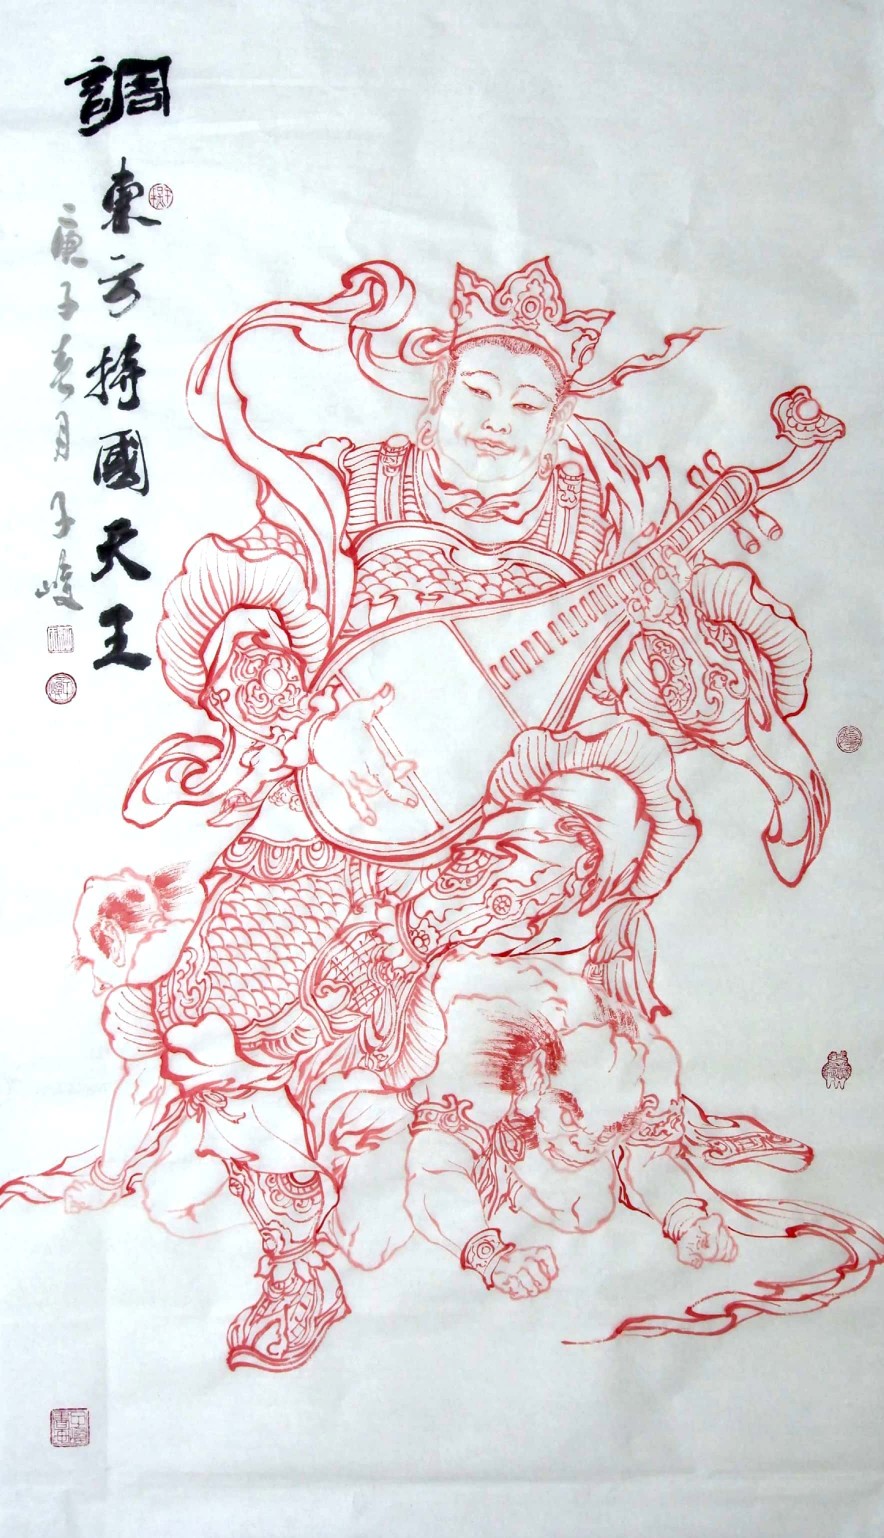 調
東方持國天王
庚子春月子峻